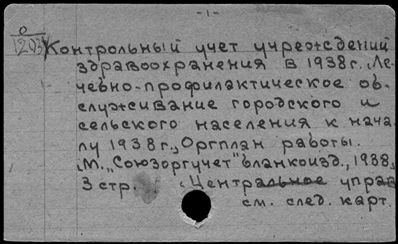 -1-
0
1203
Контрольный учет учреждений
здравоохранения в 1938г. Ле-
чебно-профилактическое об-
служивание городского и
сельского населения к нача-
лу 1938г., Оргплан работы.
М. „Союзоргучет" бланкоизд., 1938,
3 стр. Центральное управ
см. след. карт.